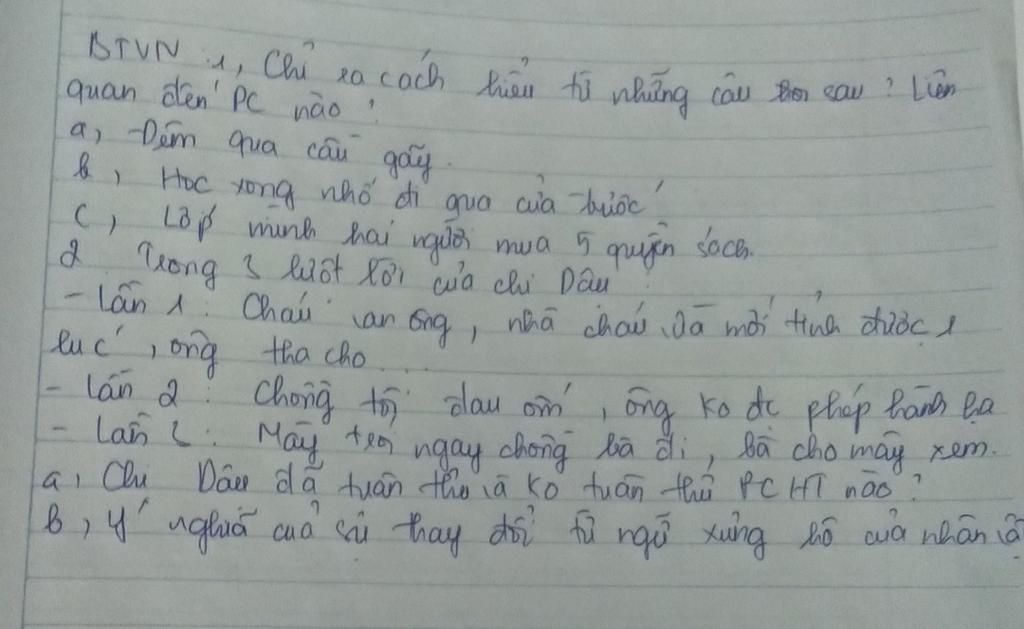 BTVN 1, Chỉ ra cách hiểu từ những câu sau ? Liên
quan đến PC nào ?
a, Đêm qua cầu gãy.
b, Học xong nhớ đi qua cửa trước
c, Lớp mình hai người mua 5 quyển sách.
2 Trong 3 lượt lời của chị Dậu
- Lần 1 : Cháu van ông, nhà cháu vừa mới tỉnh được 1
lúc, ông tha cho...
- Lần 2 : Chồng tôi đau ốm, ông ko đc phép hành hạ
- Lần 3 : Mày trói ngay chồng bà đi, bà cho mày xem.
a, Chị Dậu đã tuân thủ và ko tuân thủ PCHT nào ?
b, Ý nghĩa của sự thay đổi từ ngữ xưng hô của nhân vậ